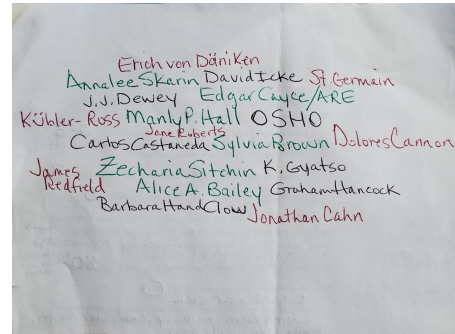 Erich von Däniken
Annalee Skarin David Icke St. Germain
J.J. Dewey Edgar Cayce/ARE
Kübler-Ross Manly P. Hall OSHO
Jane Roberts
Carlos Castaneda Sylvia Brown Dolores Cannon
James Redfield Zecharia Sitchin K. Gyatso
Alice A. Bailey Graham Hancock
Barbara Hand Clow Jonathan Cahn